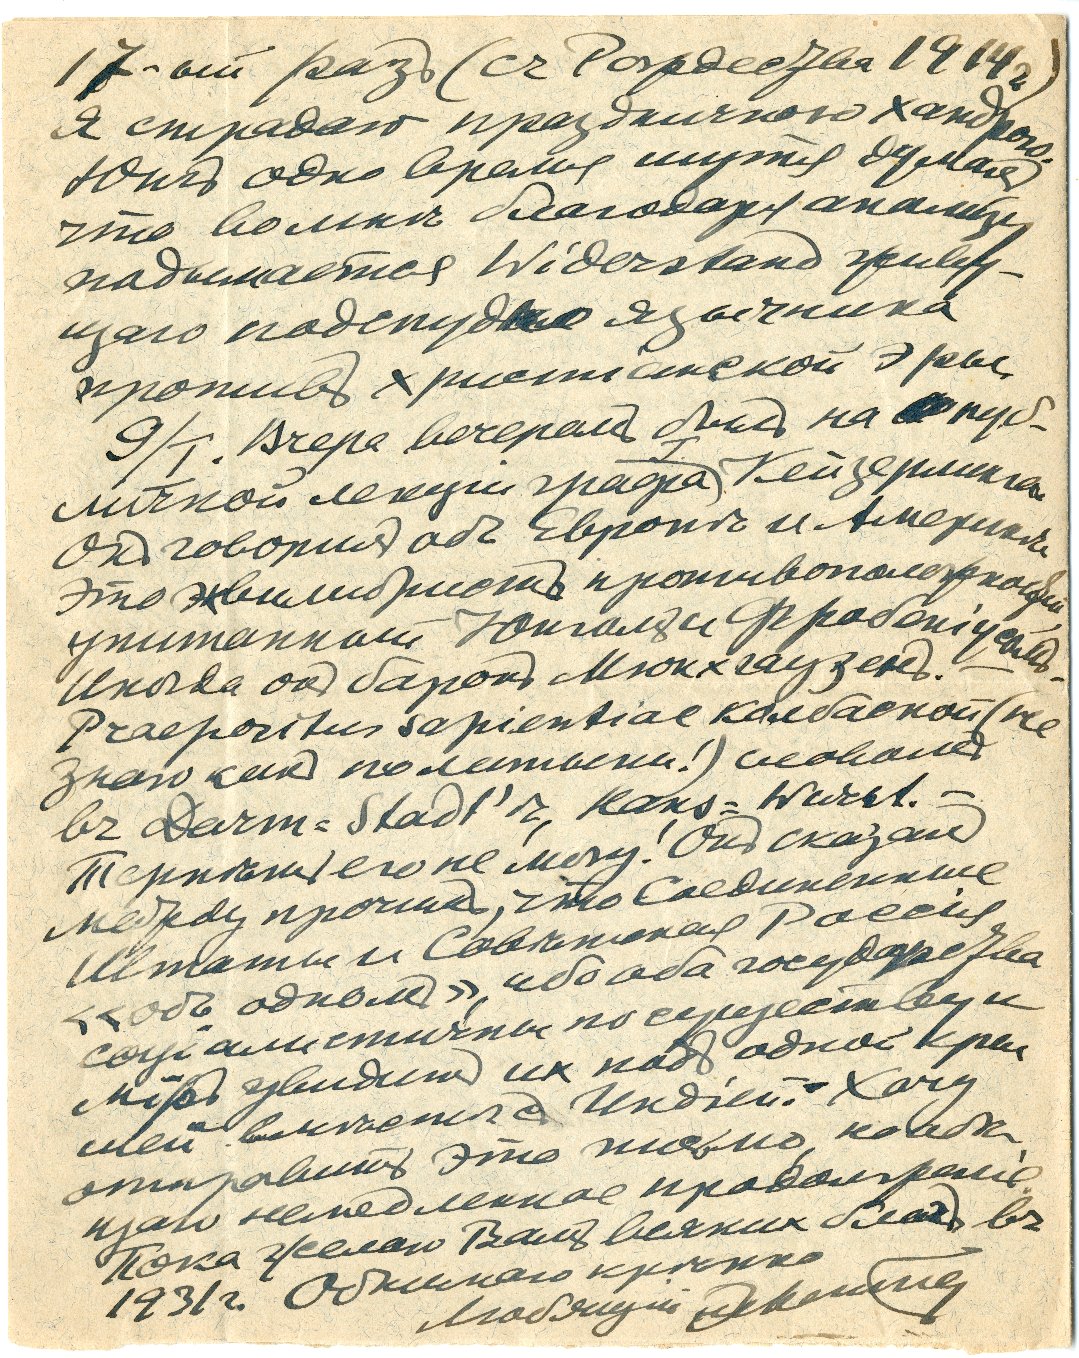 17-ый разъ (съ Рождества 1914 г)
я страдаю праздничною хандрою.
Юнгъ одно время шутя думалъ
что во мнѣ благодаря анализу
подымается Widerstand живу-
щаго подспудно язычника
противъ христіанской эры.
9/I. Вчера вечеромъ былъ на пуб-
личной лекціи графа Кейзерлинга.
Онъ говорилъ объ Европѣ и Америкѣ.
Это эквилибристъ противоположностей,
упитанный Юнгомъ и Фробеніусомъ.
Иногда онъ баронъ Мюнхгаузенъ. —
Praepositus sapientiae колбасной (не
знаю какъ по латыни!) словомъ
въ Darm=Stadt'ѣ, Hans=Wurst. —
Терпѣть его не могу! Онъ сказалъ
между прочимъ, что Соединенные
Штаты и Совѣтская Россія
«объ одномъ», ибо оба государства
соціалистичны по существу и
міръ увидитъ ихъ подъ одной кры
шей вмѣстѣ съ Индіей. Хочу
отправить это письмо,
щаю немедленное продолженіе.
Пока желаю Вамъ всякихъ благъ въ
1931 г. Обнимаю крѣпко
Любящій